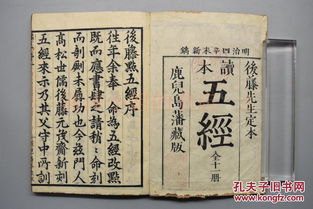 明治四辛未新鐫
後藤先生定本
讀本
五經
全十一冊
鹿兒島藩藏版
後藤點五經序
往年余奉 命為五經改點
既而應書肆之請稍々命刻
而剞劂未竣功也今茲門人
高松世儒後藤元茂齋新刻
五經來示乃其父守中所訓